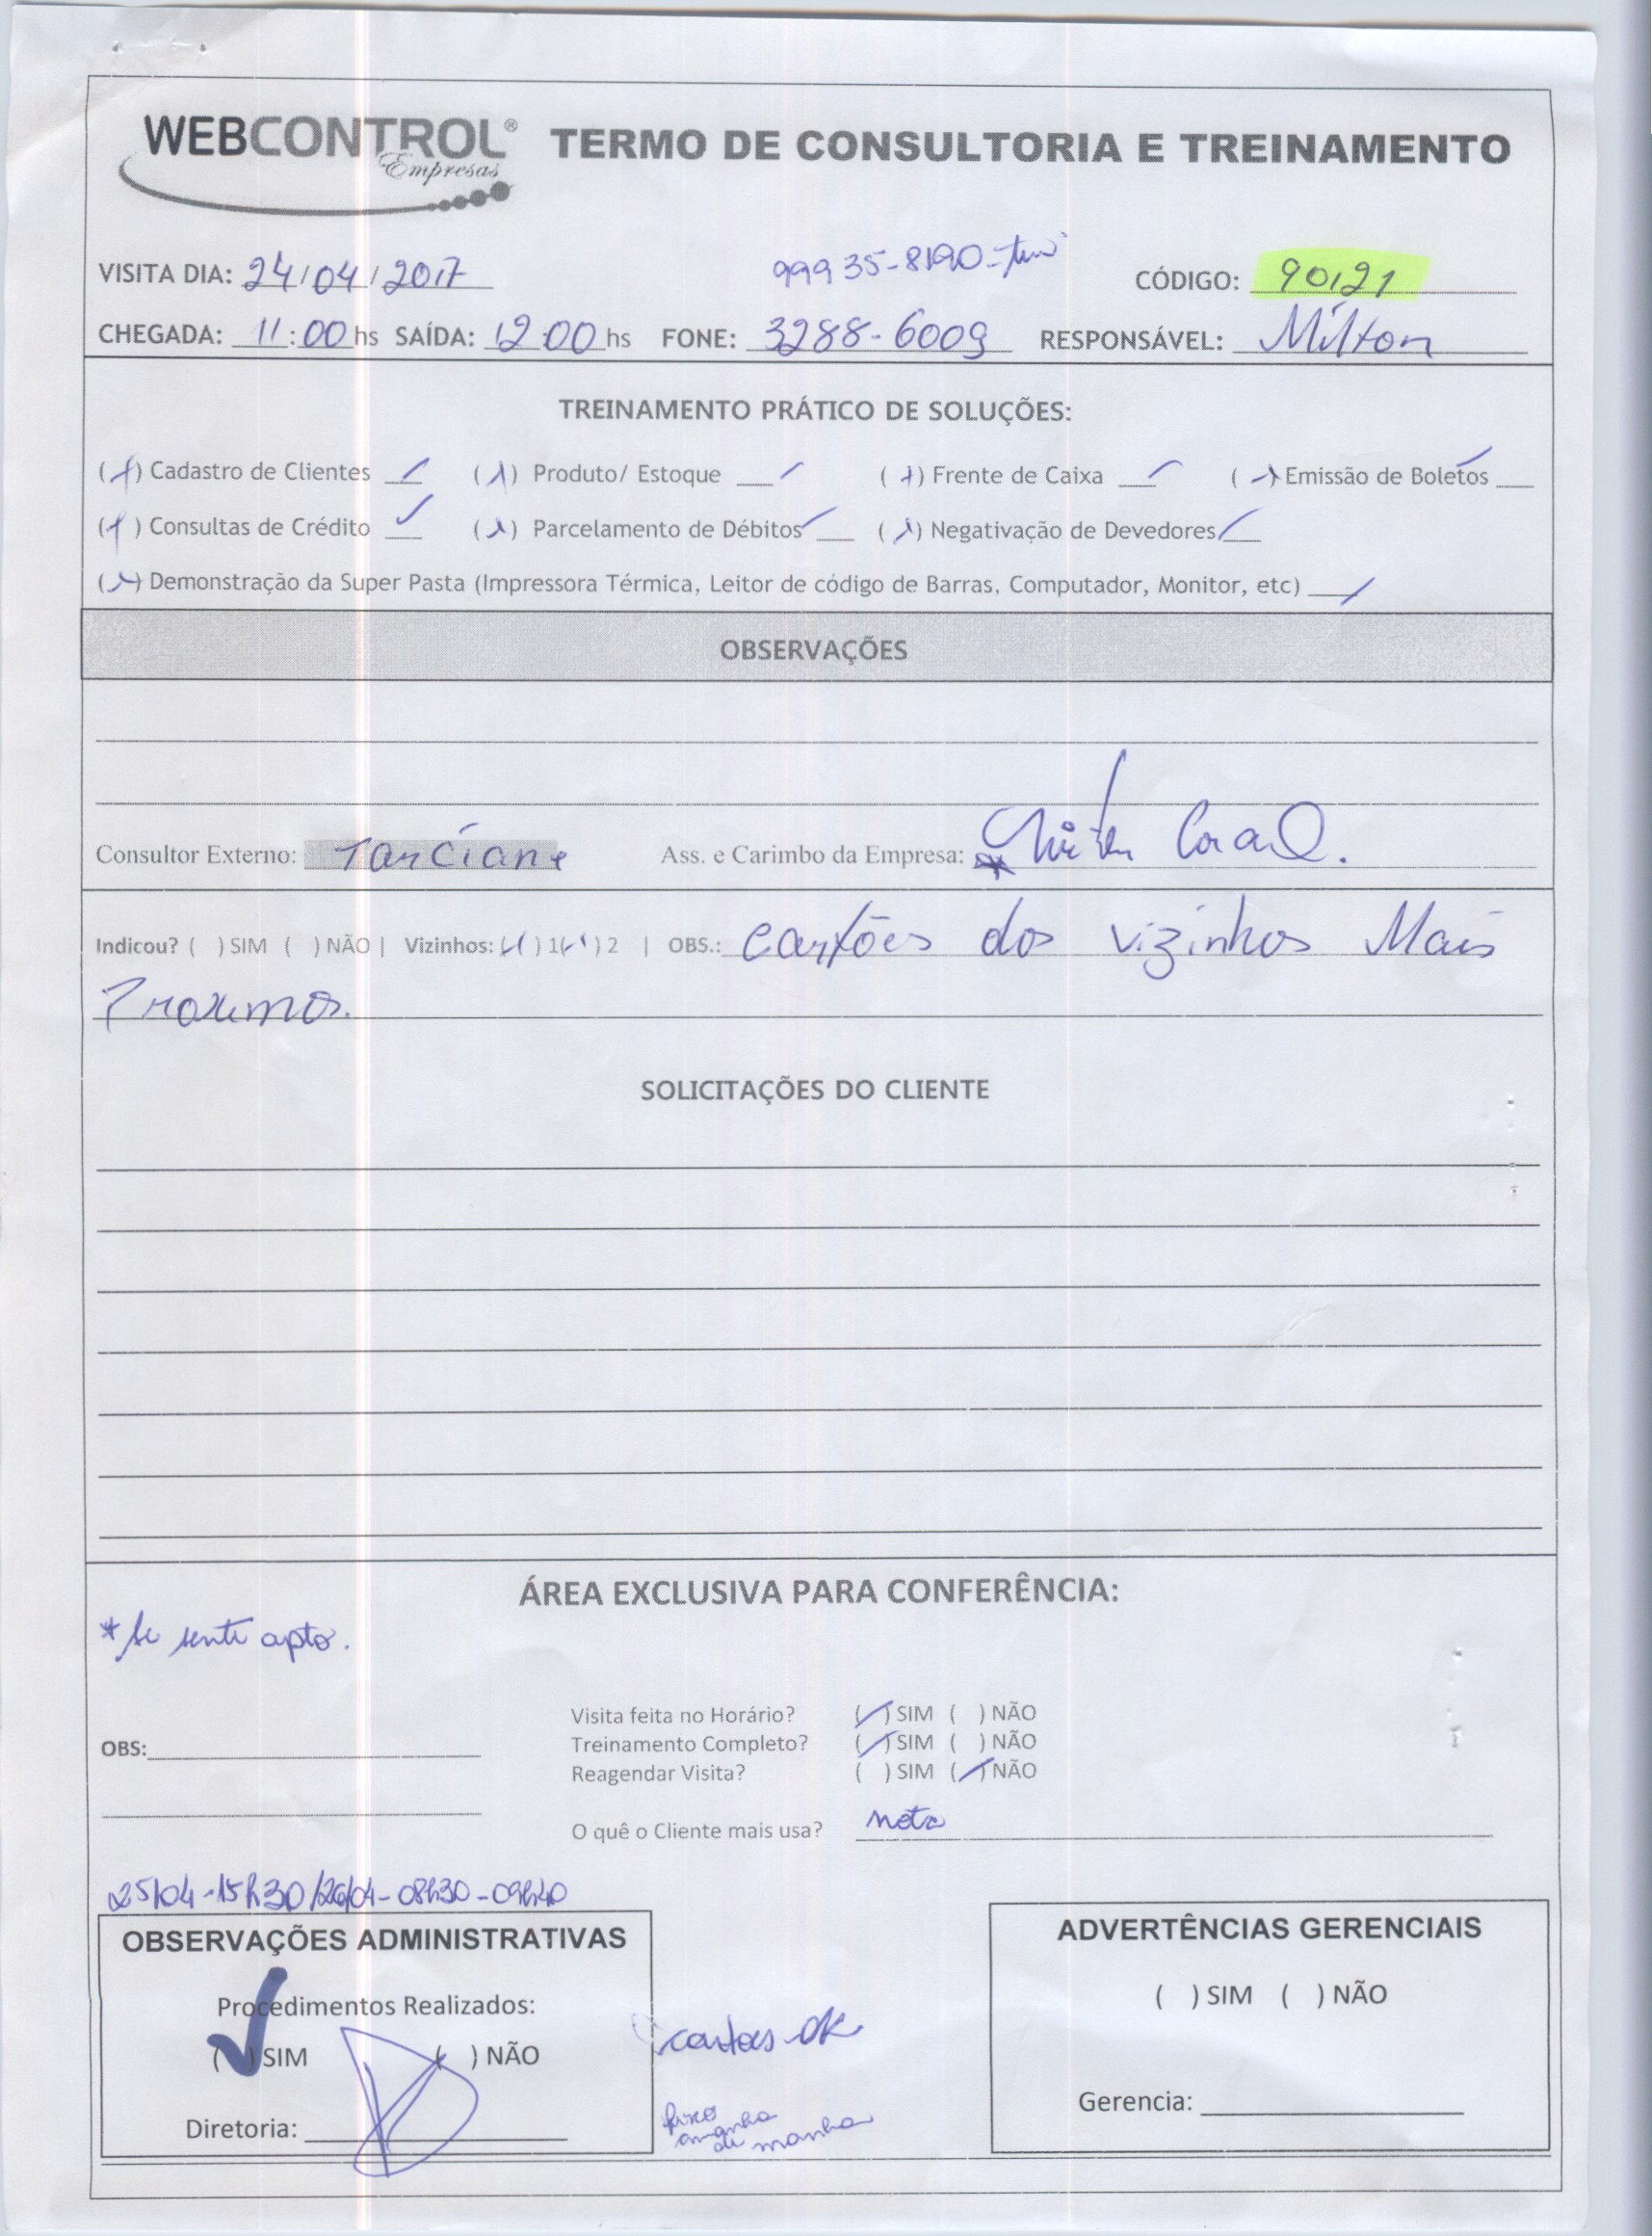 WEBCONTROL® Empresas TERMO DE CONSULTORIA E TREINAMENTO
99935-8190-
VISITA DIA: 24/04/2017 CÓDIGO: 90121
CHEGADA: 11:00 hs SAÍDA: 12:00 hs FONE: 3288-6009 RESPONSÁVEL: Milton
TREINAMENTO PRÁTICO DE SOLUÇÕES:
(x) Cadastro de Clientes ✓ (x) Produto/ Estoque ✓ (x) Frente de Caixa ✓ (x) Emissão de Boletos ✓
(x) Consultas de Crédito ✓ (x) Parcelamento de Débitos ✓ (x) Negativação de Devedores ✓
(x) Demonstração da Super Pasta (Impressora Térmica, Leitor de código de Barras, Computador, Monitor, etc) ✓
OBSERVAÇÕES
Consultor Externo: Tarciane Ass. e Carimbo da Empresa:
Indicou? ( ) SIM ( ) NÃO | Vizinhos: (x) 1 (x) 2 | OBS.: Cartões dos vizinhos Mais
Proximos.
SOLICITAÇÕES DO CLIENTE
ÁREA EXCLUSIVA PARA CONFERÊNCIA:
* Se sente apto.
Visita feita no Horário? (✓) SIM ( ) NÃO
OBS: Treinamento Completo? (✓) SIM ( ) NÃO
Reagendar Visita? ( ) SIM (✓) NÃO
O quê o Cliente mais usa? nota
25/04-15h30/26/04-08h30-09h40
OBSERVAÇÕES ADMINISTRATIVAS
Procedimentos Realizados:
(✓) SIM ( ) NÃO
Diretoria:
cartas ok
fixo
amanha
de manha
ADVERTÊNCIAS GERENCIAIS
( ) SIM ( ) NÃO
Gerencia: